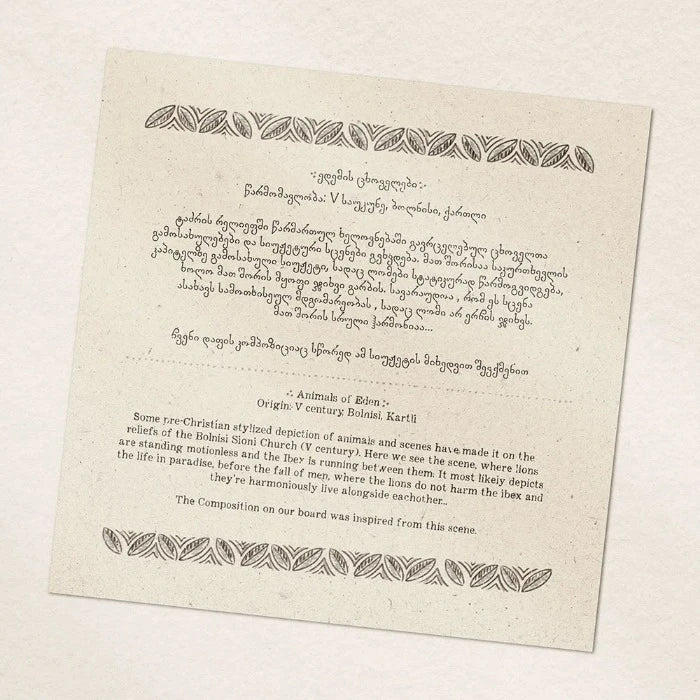 ·:ედემის ცხოველები:·
წარმომავლობა: V საუკუნე, ბოლნისი, ქართლი
ტაძრის რელიეფში წარმართულ ხელოვნებაში გავრცელებულ ცხოველთა
გამოსახულებები და სიუჟეტური სცენები გვხვდება. მათ შორისაა საკურთხევლის
კაპიტელზე გამოსახული სიუჟეტი, სადაც ლომები სტატიკურად წარმოგვიდგება,
ხოლო მათ შორის მყოფი ჯიხვი გარბის. სავარაუდოა, რომ ეს სცენა
ასახავს სამოთხისეულ მდგომარეობას, სადაც ლომი არ ერჩის ჯიხვს.
მათ შორის სრული ჰარმონიაა...
ჩვენი დაფის კომპოზიციაც სწორედ ამ სიუჟეტის მიხედვით შევქმენით
·:Animals of Eden:·
Origin: V century, Bolnisi, Kartli
Some pre-Christian stylized depiction of animals and scenes have made it on the
reliefs of the Bolnisi Sioni Church (V century). Here we see the scene, where lions
are standing motionless and the Ibex is running between them. It most likely depicts
the life in paradise, before the fall of men, where the lions do not harm the ibex and
they're harmoniously live alongside eachother...
The Composition on our board was inspired from this scene.